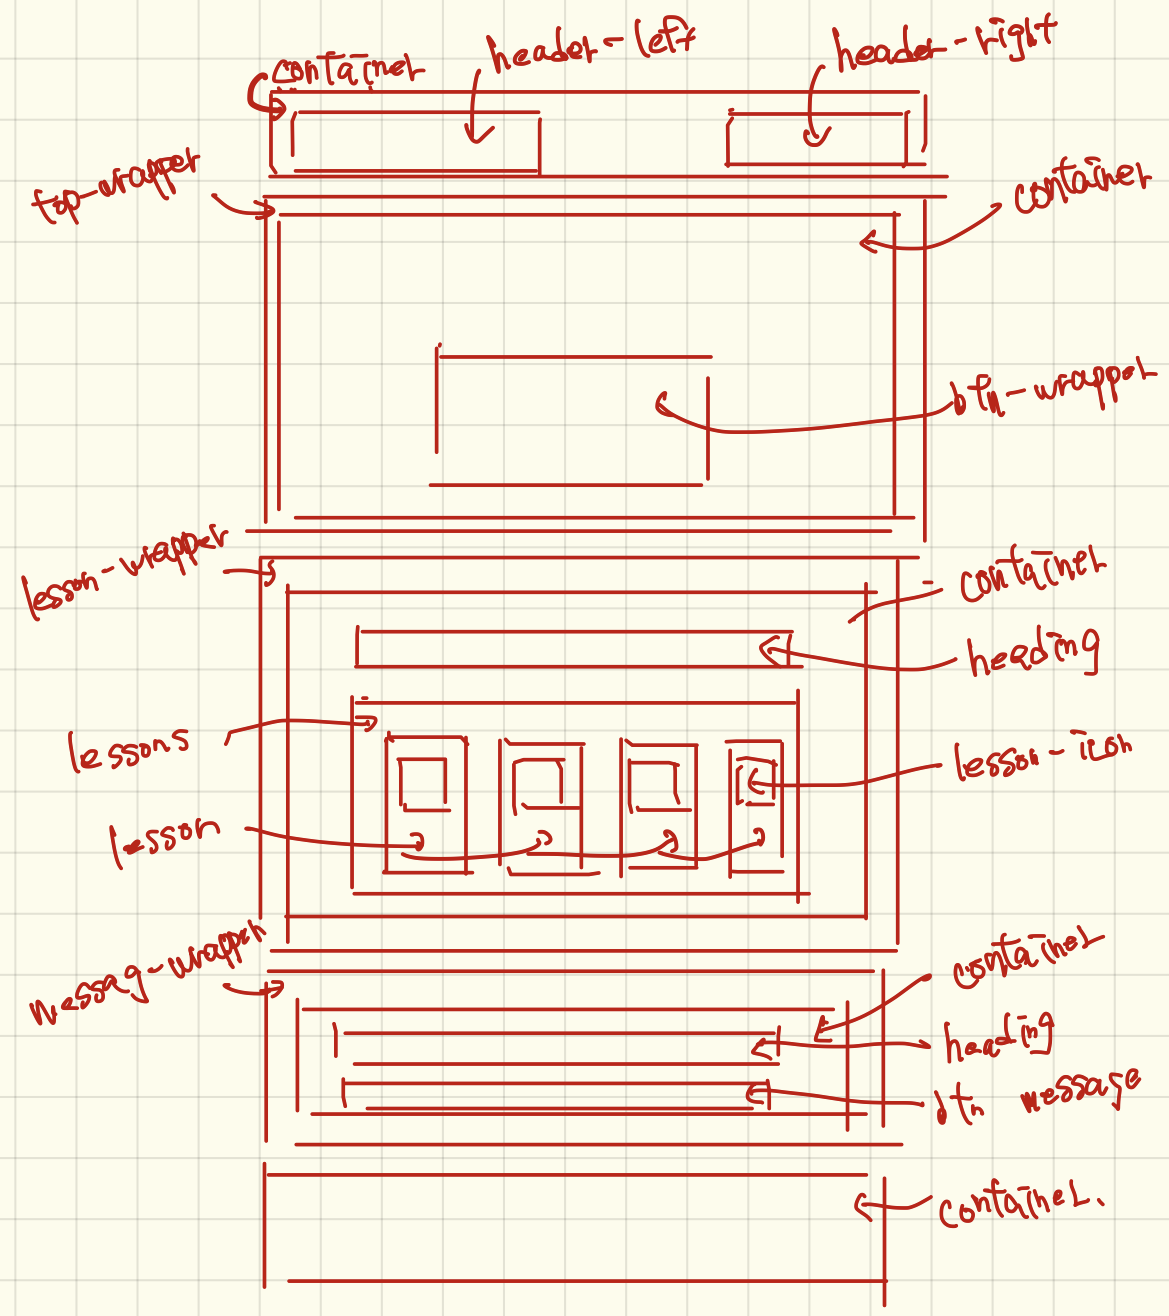 container
header-left
header-right
top-wrapper
container
btn-wrapper
lesson-wrapper
container
heading
lessons
lesson-icon
lesson
messag-wrapper
container
heading
btn message
container.